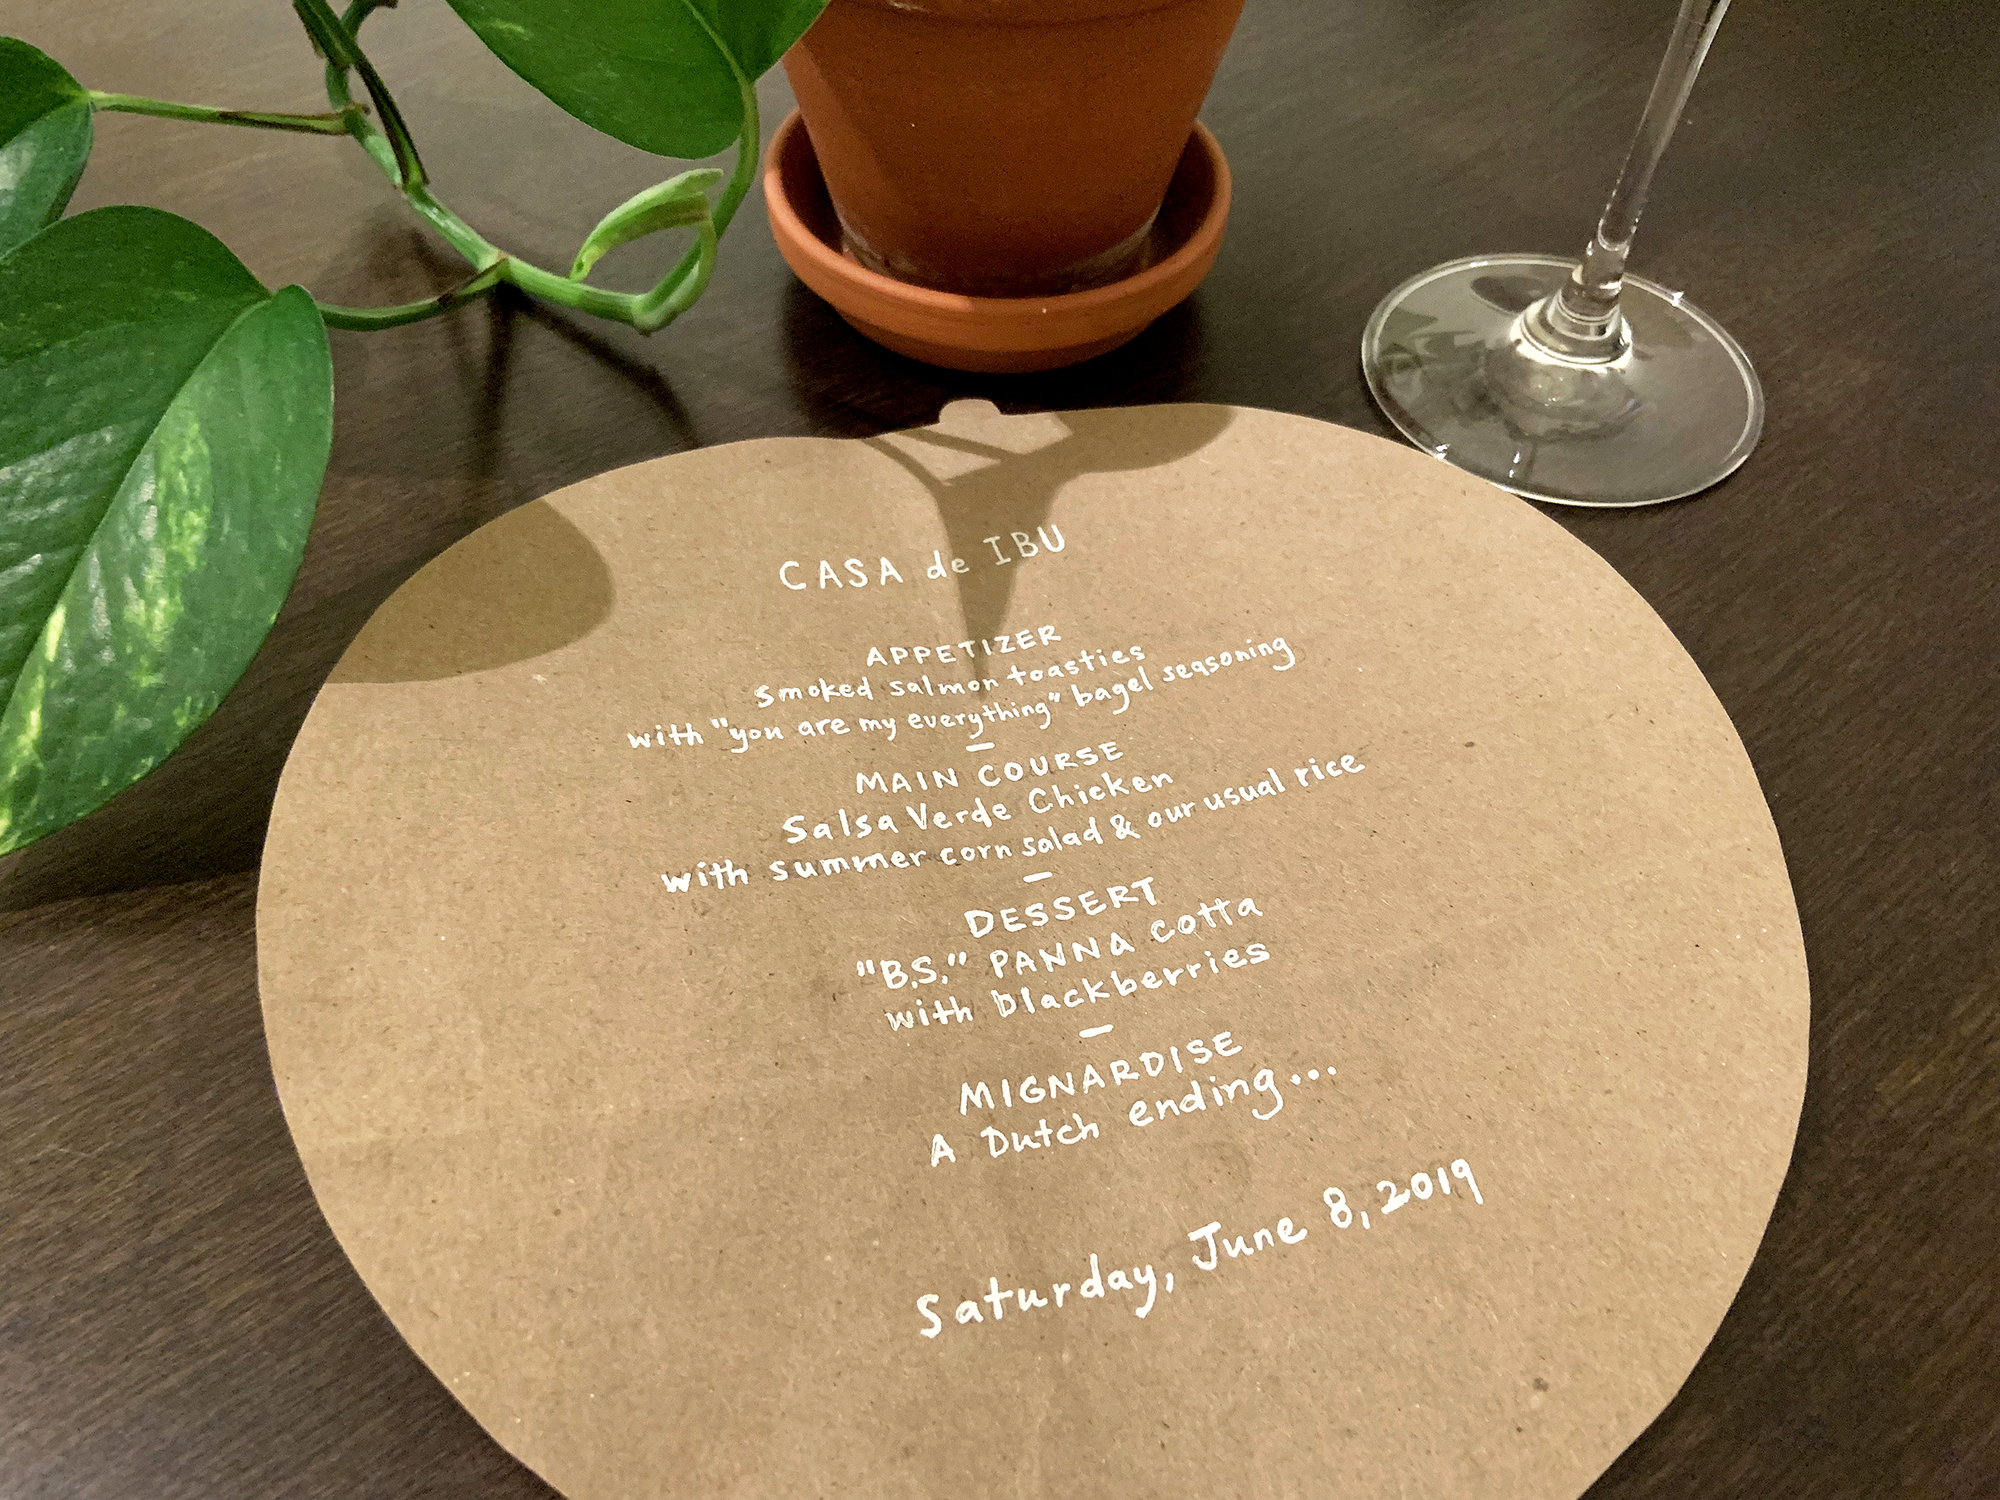 CASA de IBU
APPETIZER
smoked salmon toasties
with "you are my everything" bagel seasoning
—
MAIN COURSE
Salsa Verde Chicken
with summer corn salad & our usual rice
—
DESSERT
"B.S." PANNA cotta
with blackberries
—
MIGNARDISE
A Dutch ending...
Saturday, June 8, 2019